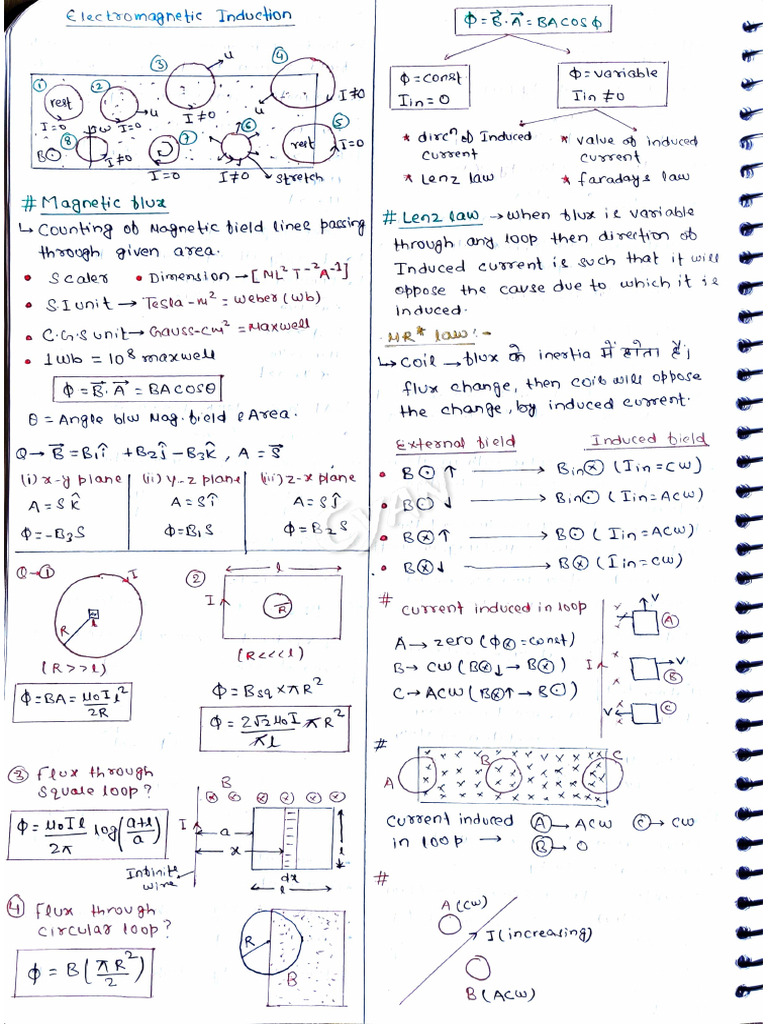 Electromagnetic Induction
① ② ③ ④
rest u u u I≠0
I=0 I=0 I≠0
ω ⑥ ⑤
⑧ ⑦ rest I=0
B⊙ I≠0 I=0 I≠0 stretch
# Magnetic flux
↳ Counting of Magnetic field lines passing
through given area.
• Scaler • Dimension → [ML² T⁻² A⁻¹]
• S.I unit → Tesla-m² = Weber (wb)
• C.G.S unit → Gauss-cm² = Maxwell
• 1wb = 10⁸ maxwell
ϕ = B⃗.A⃗ = BACOSθ
θ = Angle b/w Mag. field & Area.
Q→ B⃗ = B₁î + B₂ĵ - B₃k̂ , A = S⃗
(i) x-y plane (ii) y-z plane (iii) z-x plane
A = S k̂ A = S î A = S ĵ
ϕ = -B₃S ϕ = B₁S ϕ = B₂S
Q→① I
R l
(R>>l)
ϕ = BA = μ₀I l²/2R
② l
I R
(R<<<l)
ϕ = Bsq × πR²
ϕ = 2√2 μ₀I/πl πR²
③ Flux through
square loop?
ϕ = μ₀Il/2π log(a+l/a)
B
I a l
x
dx
l
Infinite
wire
④ Flux through
circular loop?
ϕ = B(πR²/2)
R B
ϕ = B⃗.A⃗ = BACOSϕ
ϕ = const
Iin = 0
ϕ = variable
Iin ≠ 0
* dircⁿ of Induced
current
* Lenz law
* value of induced
current
* faradays law
# Lenz law → when flux is variable
through any loop then direction of
Induced current is such that it will
oppose the cause due to which it is
Induced.
MR* law:-
↳ Coil → flux के inertia में होता है।
flux change, then coil will oppose
the change, by induced current.
External field Induced field
• B⊙↑ → Bin⊗ (Iin = CW)
• B⊙↓ → Bin⊙ (Iin = ACW)
• B⊗↑ → B⊙ (Iin = ACW)
• B⊗↓ → B⊗ (Iin = CW)
# Current induced in loop
A → zero (ϕ⊗ = const)
B → CW (B⊗↓ → B⊗)
C → ACW (B⊗↑ → B⊙)
V A
I V B
V C
#
A B C
Current induced Ⓐ→ ACW Ⓒ→ CW
in loop → Ⓑ→ 0
#
A (CW)
I (increasing)
B (ACW)
CYAN